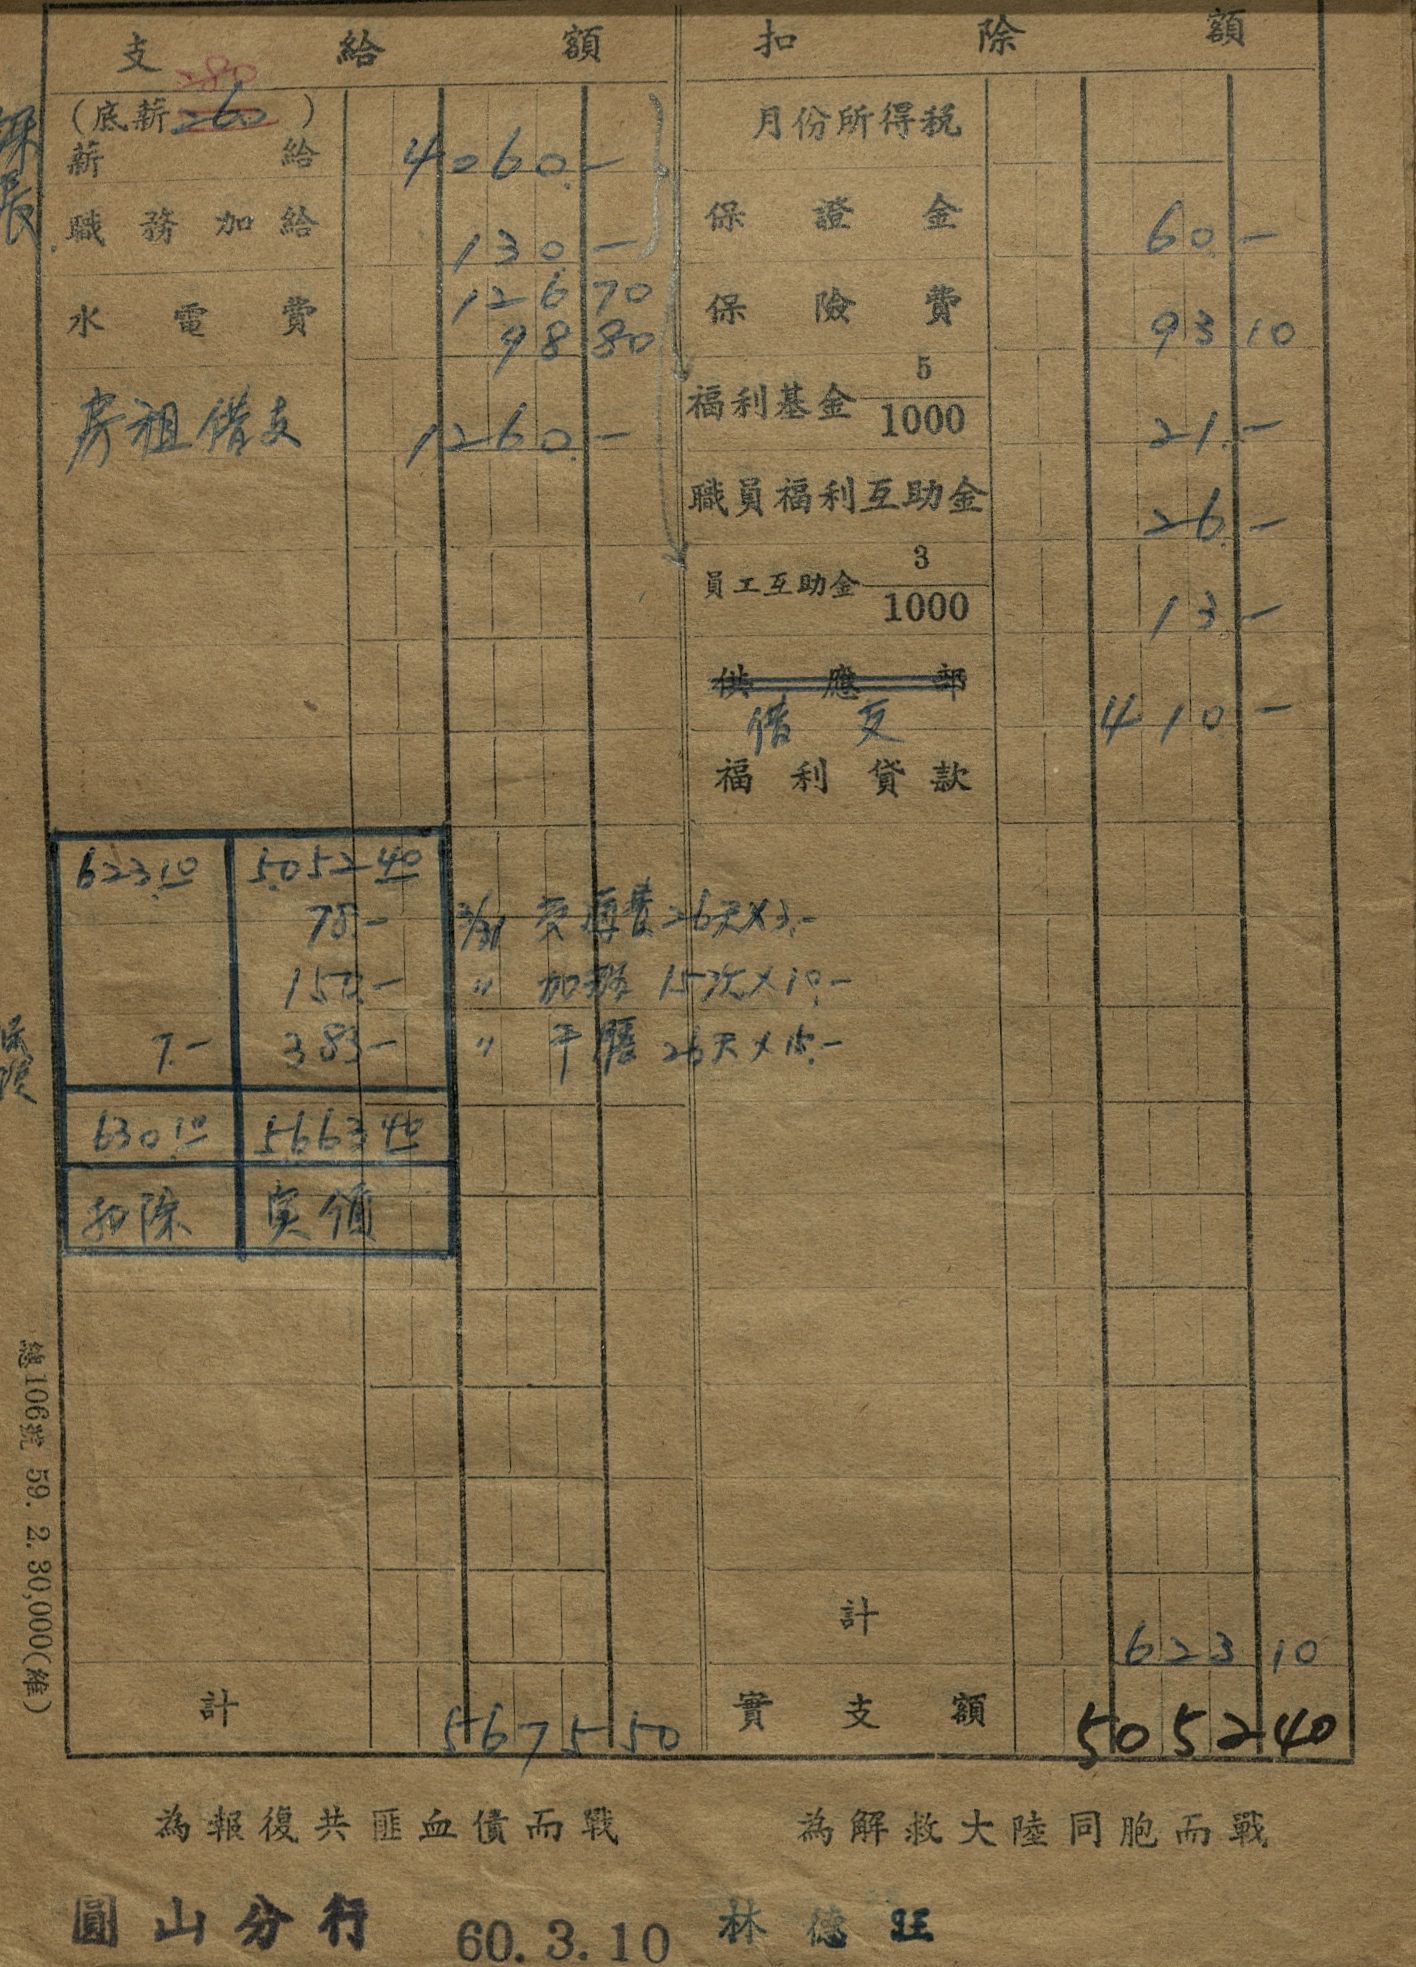 支給額
280
(底薪260)
薪給 4060.-
職務加給 130.-
水電費 126 70
98 80
房租借支 1260.-
計 5675 50
扣除額
月份所得稅
保證金 60.-
保險費 93 10
福利基金 5/1000 21.-
職員福利互助金 26.-
員工互助金 3/1000 13.-
供應部
借支 410.-
福利貸款
計 623 10
實支額 5052 40
623.10 5052 40
78.- 26天×3.-
150.- 〃 加班 15次×10.-
7.- 383.- 〃 午膳 26天×15.-
630.10 5663.40
扣除 実領
總106號 59. 2. 30,000(維)
為報復共匪血債而戰 為解救大陸同胞而戰
圓山分行 60.3.10 林德旺